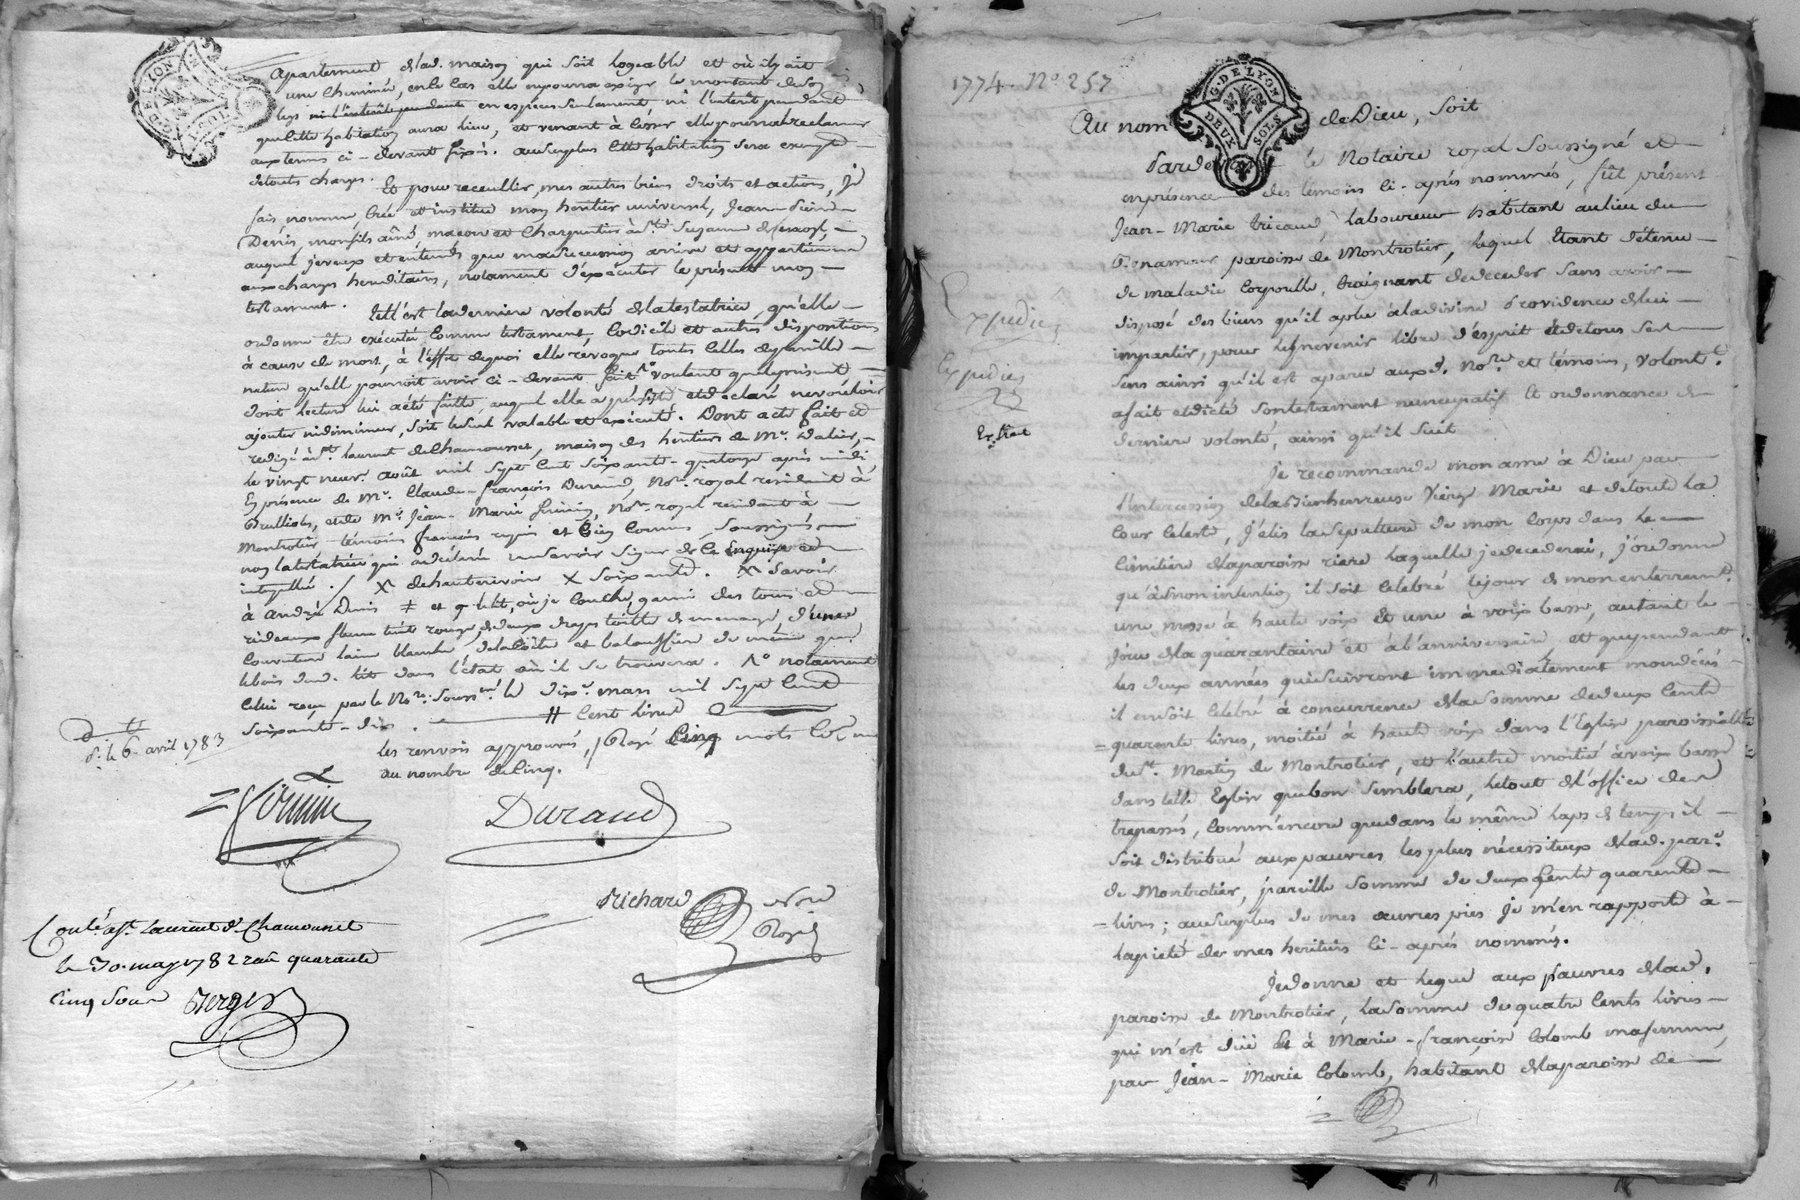 G. DE LYON
DEUX SOLS
Apartement de lad. maison qui soit logeable et où il y ait
une cheminée, en le cas elle ne pourra exiger le montant de son
legs ni l'intérêt pendant en espèces seulement ni l'intérêt pendant
que cette habitation aura lieu, et venant à cesser elle pourra reclamer
aux termes ci-devant fixés. au surplus cette habitation sera exempte
de touts charges.
Et pour receuillir, mes autres biens droits et actions, Je
fais, nomme, crée et institue mon heritier universel, Jean-
Denis, mon fils aîné macon et Charpentier à
auquel je veux et entends que ma succession arrive et appartienne
aux charges hereditaires, notament d'exécuter le présent mon
testament.
Tell'est la derniere volonté de la testatrice, qu'elle
ordonne être exécutée comme testament, Codicile et autres dispositions
à cause de mort, à l'effet de quoi elle revoque toutes celles de pareille
nature qu'elle pourroit avoir ci-devant fait voulant que le présent
dont lecture lui a été faitte, auquel elle a persisté et declaré ne vouloir
ajouter ni diminuer, soit le seul valable et exécuté. Dont acte fait et
redigé à St. Laurent de Chamousset, maison des heritiers de Mr. Dalier,
le vingt neuf août mil sept cent soixante-quatorze après midi
En présence de Mr. Claude-françois Durand, Nore. royal résident à
Brullioles, et de Mr. Jean-Marie firmin, Nore. royal résidant à
Montrotier témoins françois requis et bien connus, soussignés
non la testatrice qui a déclaré ne savoir signer de ce Enquise et
interpellée. / X de hauterivoire X soixante. X savoir
à andré Denis ‡ et q. le lit, où je couche, garni des tours et
rideaux teint rouge, de deux draps toille de menage, d'une
Couverture laine blanche, de la Coëte et balouffiere de même que
le bois dud. lit dans l'état où il se trouvera. 1º notament
celui reçu par le Nre. Souss.né le dixe. mars mil sept cent
soixante-dix. ‡ cent livres
les renvois approuvés, / Rayé cinq mots
au nombre de cinq.
d. le 6. avril 1783
Firmin
Durand
Richard Nore
Royal
Conlé. à St. Laurent de Chamousset
le 30. may 1782 quarante
Cinq Sous Berger
1774. Nº 257
G. DE LYON
DEUX SOLS
Au nom de Dieu, soit
Pardevant le Notaire royal Soussigné et
en présence des témoins ci-après nommés, fût présent
Jean-Marie tricaud, laboureur habitant au lieu du
Bonamour paroisse de Montrotier, lequel étant détenu
de maladie corporelle, craignant de deceder sans avoir
disposé des biens qu'il a plu à la divine Providence de lui
impartir, pour
sens ainsi qu'il est aparu auxd. Nore. et témoins, volont.t
a fait et dicté son testament nuncupatif et ordonnance de
derniere volonté, ainsi qu'il suit
Expedié
Expediée
Extrait
Je recommande mon ame à Dieu par
l'intercession de la Bienheureuse Vierge Marie et de toute la
Cour Celeste, J'élis la sépulture de mon corps dans le
Cimitiere de la paroisse riere laquelle je decederai, j'ordonne
qu'à mon intention il soit célébré le jour de mon enterrement.
une messe à haute voix et une à voix basse, autant le
jour de la quarantaine et à l'anniversaire, et que pendant
les deux années qui suivront immediatement mon décés
il en soit célébré à concurrence de la somme de deux cents
quarante livres, moitié à haute voix dans l'Eglise paroissiale
de St. Martin de Montrotier, et l'autre moitié à voix basse
dans telle Eglise que bon semblera, le tout de l'office des
trepassés, comm'encore que dans le même laps de temps il
soit distribué aux pauvres les plus nécessiteux de lad. par.e
de Montrotier, pareille somme de deux cents quarante
livres; au surplus de mes œuvres pies je m'en rapporte à
la pieté de mes heritiers ci-après nommés.
Je donne et legue aux pauvres de lad.
paroisse de Montrotier, la somme de quatre cents livres
qui m'est duë et à Marie-françoise Colomb ma femme,
par Jean-Marie Colomb, habitant de la paroisse de